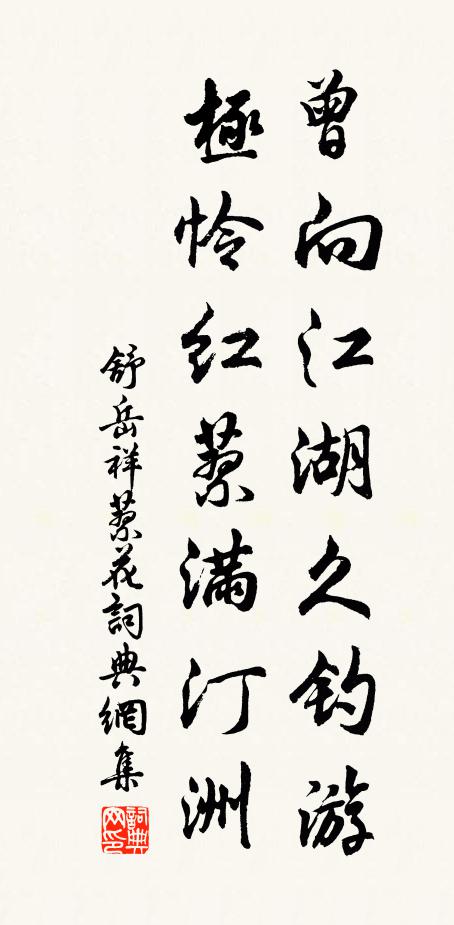 曾向江湖久釣游
極怜红蓼滿汀洲
舒岳祥蓼花詞典網集
詞典网印